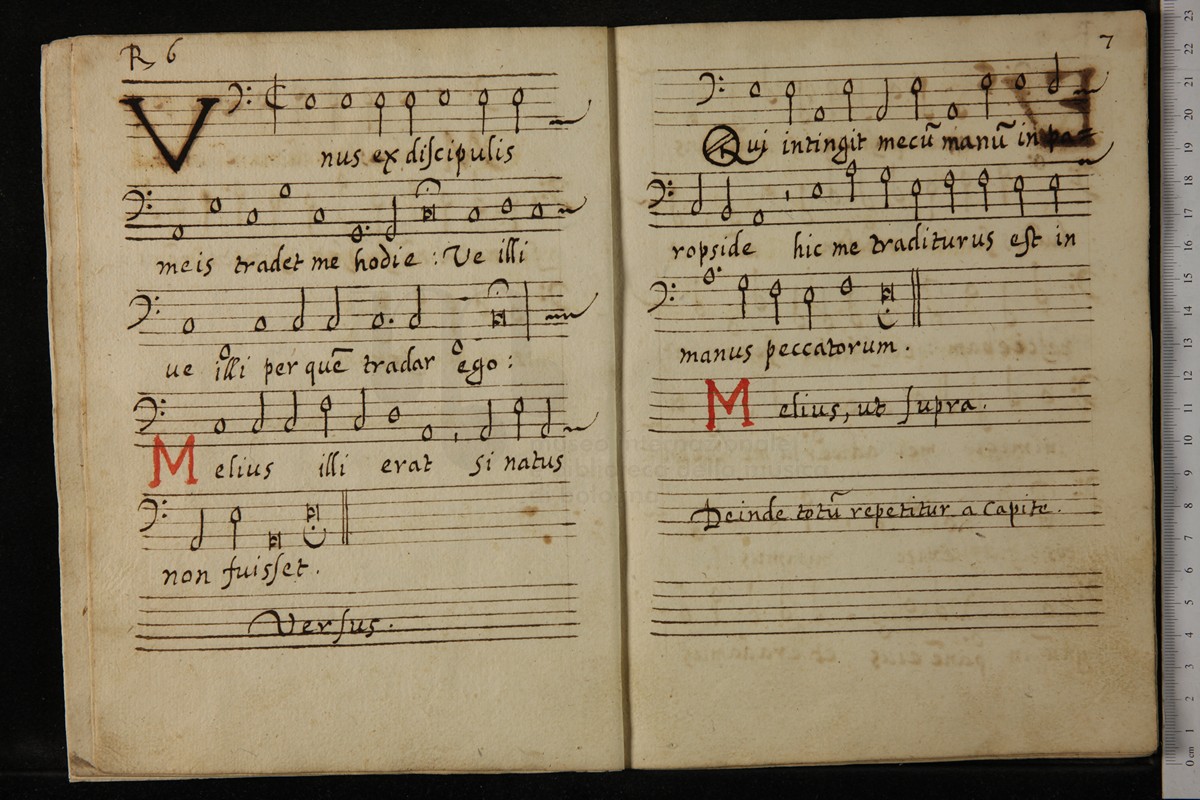 R 6
Vnus ex discipulis
meis tradet me hodie : Ve illi
ue illi per quē tradar ego :
Melius illi erat si natus
non fuisset .
Versus .
7
Qui intingit mecū manū in pa=
ropside hic me traditurus est in
manus peccatorum .
Melius, ut supra .
Deinde totū repetitur a Capite .
museo internazionale
biblioteca della musica
di bologna